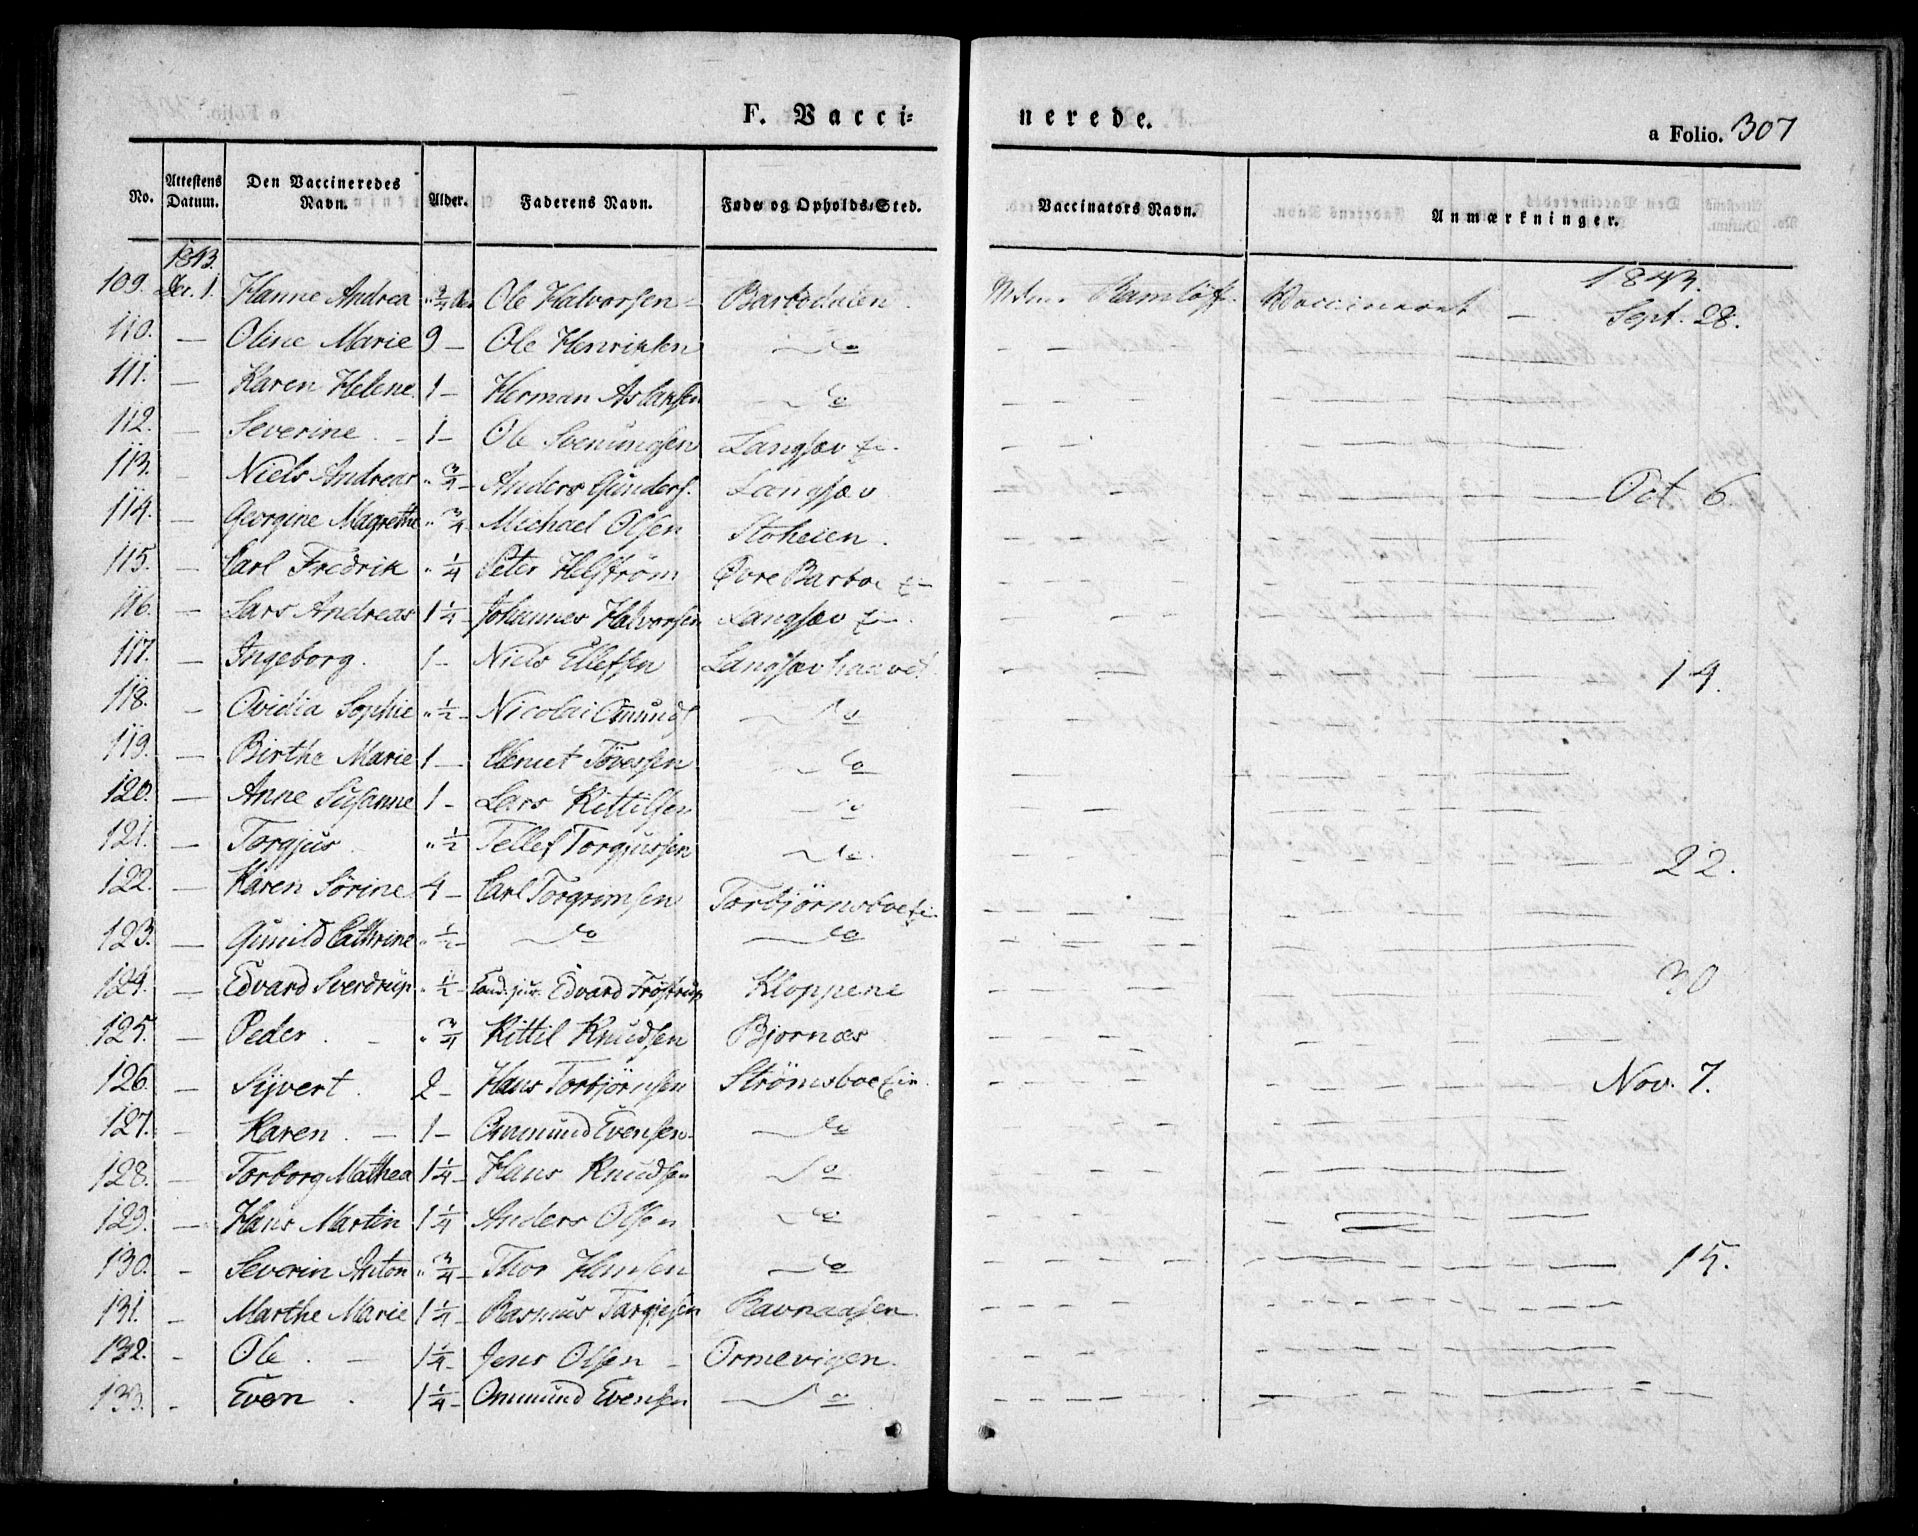 F. Vacci-
nerede.
a Folio. 307
No. Attestens Datum. Den Vaccineredes Navn. Alder. Faderens Navn. Føde og Opholds-Sted. Vaccinators Navn. Anmærkninger.
1843. 1843.
109. Dec. 1. Hanne Andrea " 3/4 Ole Halvorsen Barbodalen. Ramløff. Vaccineret — Sept. 28.
110. — Oline Marie 9 – Ole Henriksen — do — —
111. — Karen Helene 1 – Herman Aslaksen — do — —
112. — Severine. – 1 – Ole Svenungsen Langsæv — —
113. — Niels Andreas " 3/4 – Anders Gunders. Langsæv — — Oct. 6
114. – Georgine Magrethe " 3/4 – Michael Olsen Stoheien. — —
115. – Carl Fredrik " 1/4 Peter Helström Øvre Barboe — —
116. – Lars Andreas 1 1/4 – Johannes Halvorsen Langsæv — —
117. – Ingeborg. 1 – Niels Ellefsen Langsævhaavet — — 14.
118. – Ovidia Sophie " 1/2 – Nicolai Omunds — do — —
119. — Birthe Marie 1 – Töversen — do — —
120. — Anne Susanne 1 – Lars Kittilsen — do — —
121. — Torgjus. " 1/2 Tellef Torgjussen — do. — — 22.
122. — Karen Sörine 4 – Carl Torgrimsen Torbjörnsboe — —
123. — Gunild Cathrine " 1/2 – — do — do — —
124. — Edvard Sverdrup " 1/2 – Cand. jur. Edvard Tröstrup Kloppene — — 30
125. — Peder. – " 3/4 Kittil Knudsen Bjornæs — —
126. – Sijvert. 2 – Hans Torbjörnsen Strömsboe — — Nov. 7.
127. – Karen. – 1 – Ommund Evensen — do — —
128. – Torborg Mathea 1 1/4 – Hans Knudsen — do — —
129. — Hans Martin 1 1/4 Anders Olsen — do — —
130. – Severin Anton " 3/4 – Thor Hansen — do — — 15.
131. – Marthe Marie 1 1/4 – Rasmus Targjesen Ravnaasen. — —
132. – Ole. — 1 1/4 – Jens Olsen – Ormevigen. — —
133. – Even. 1 1/4 – Ommund Evensen — do — —